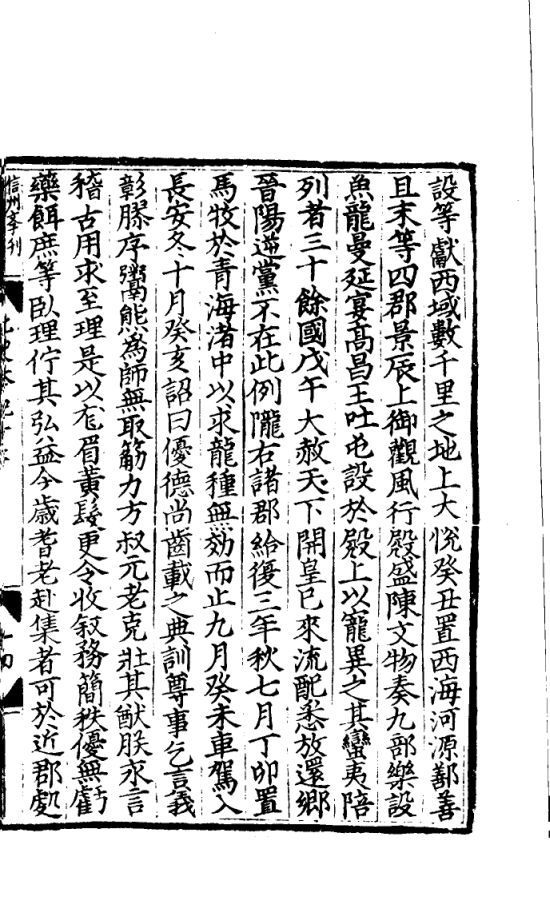 設等獻西域數千里之地上大悅癸丑置西海河源鄯善
且末等四郡景辰上御觀風行殿盛陳文物奏九部樂設
魚龍曼延宴髙昌王吐屯設於殿上以寵異之其蠻夷陪
列者三十餘國戊午大赦天下開皇已來流配悉放還鄉
晉陽逆黨不在此例隴右諸郡給復三年秋七月丁卯置
馬牧於青海渚中以求龍種無効而止九月癸未車駕入
長安冬十月癸亥詔曰優德尚齒載之典訓尊事乞言義
彰膠序鬻熊為師無取筋力方叔元老克壯其猷朕永言
稽古用求至理是以尨眉黃髮更令收叙務簡秩優無虧
藥餌庶等臥理佇其弘益今歳耆老赴集者可於近郡處
信州 刊